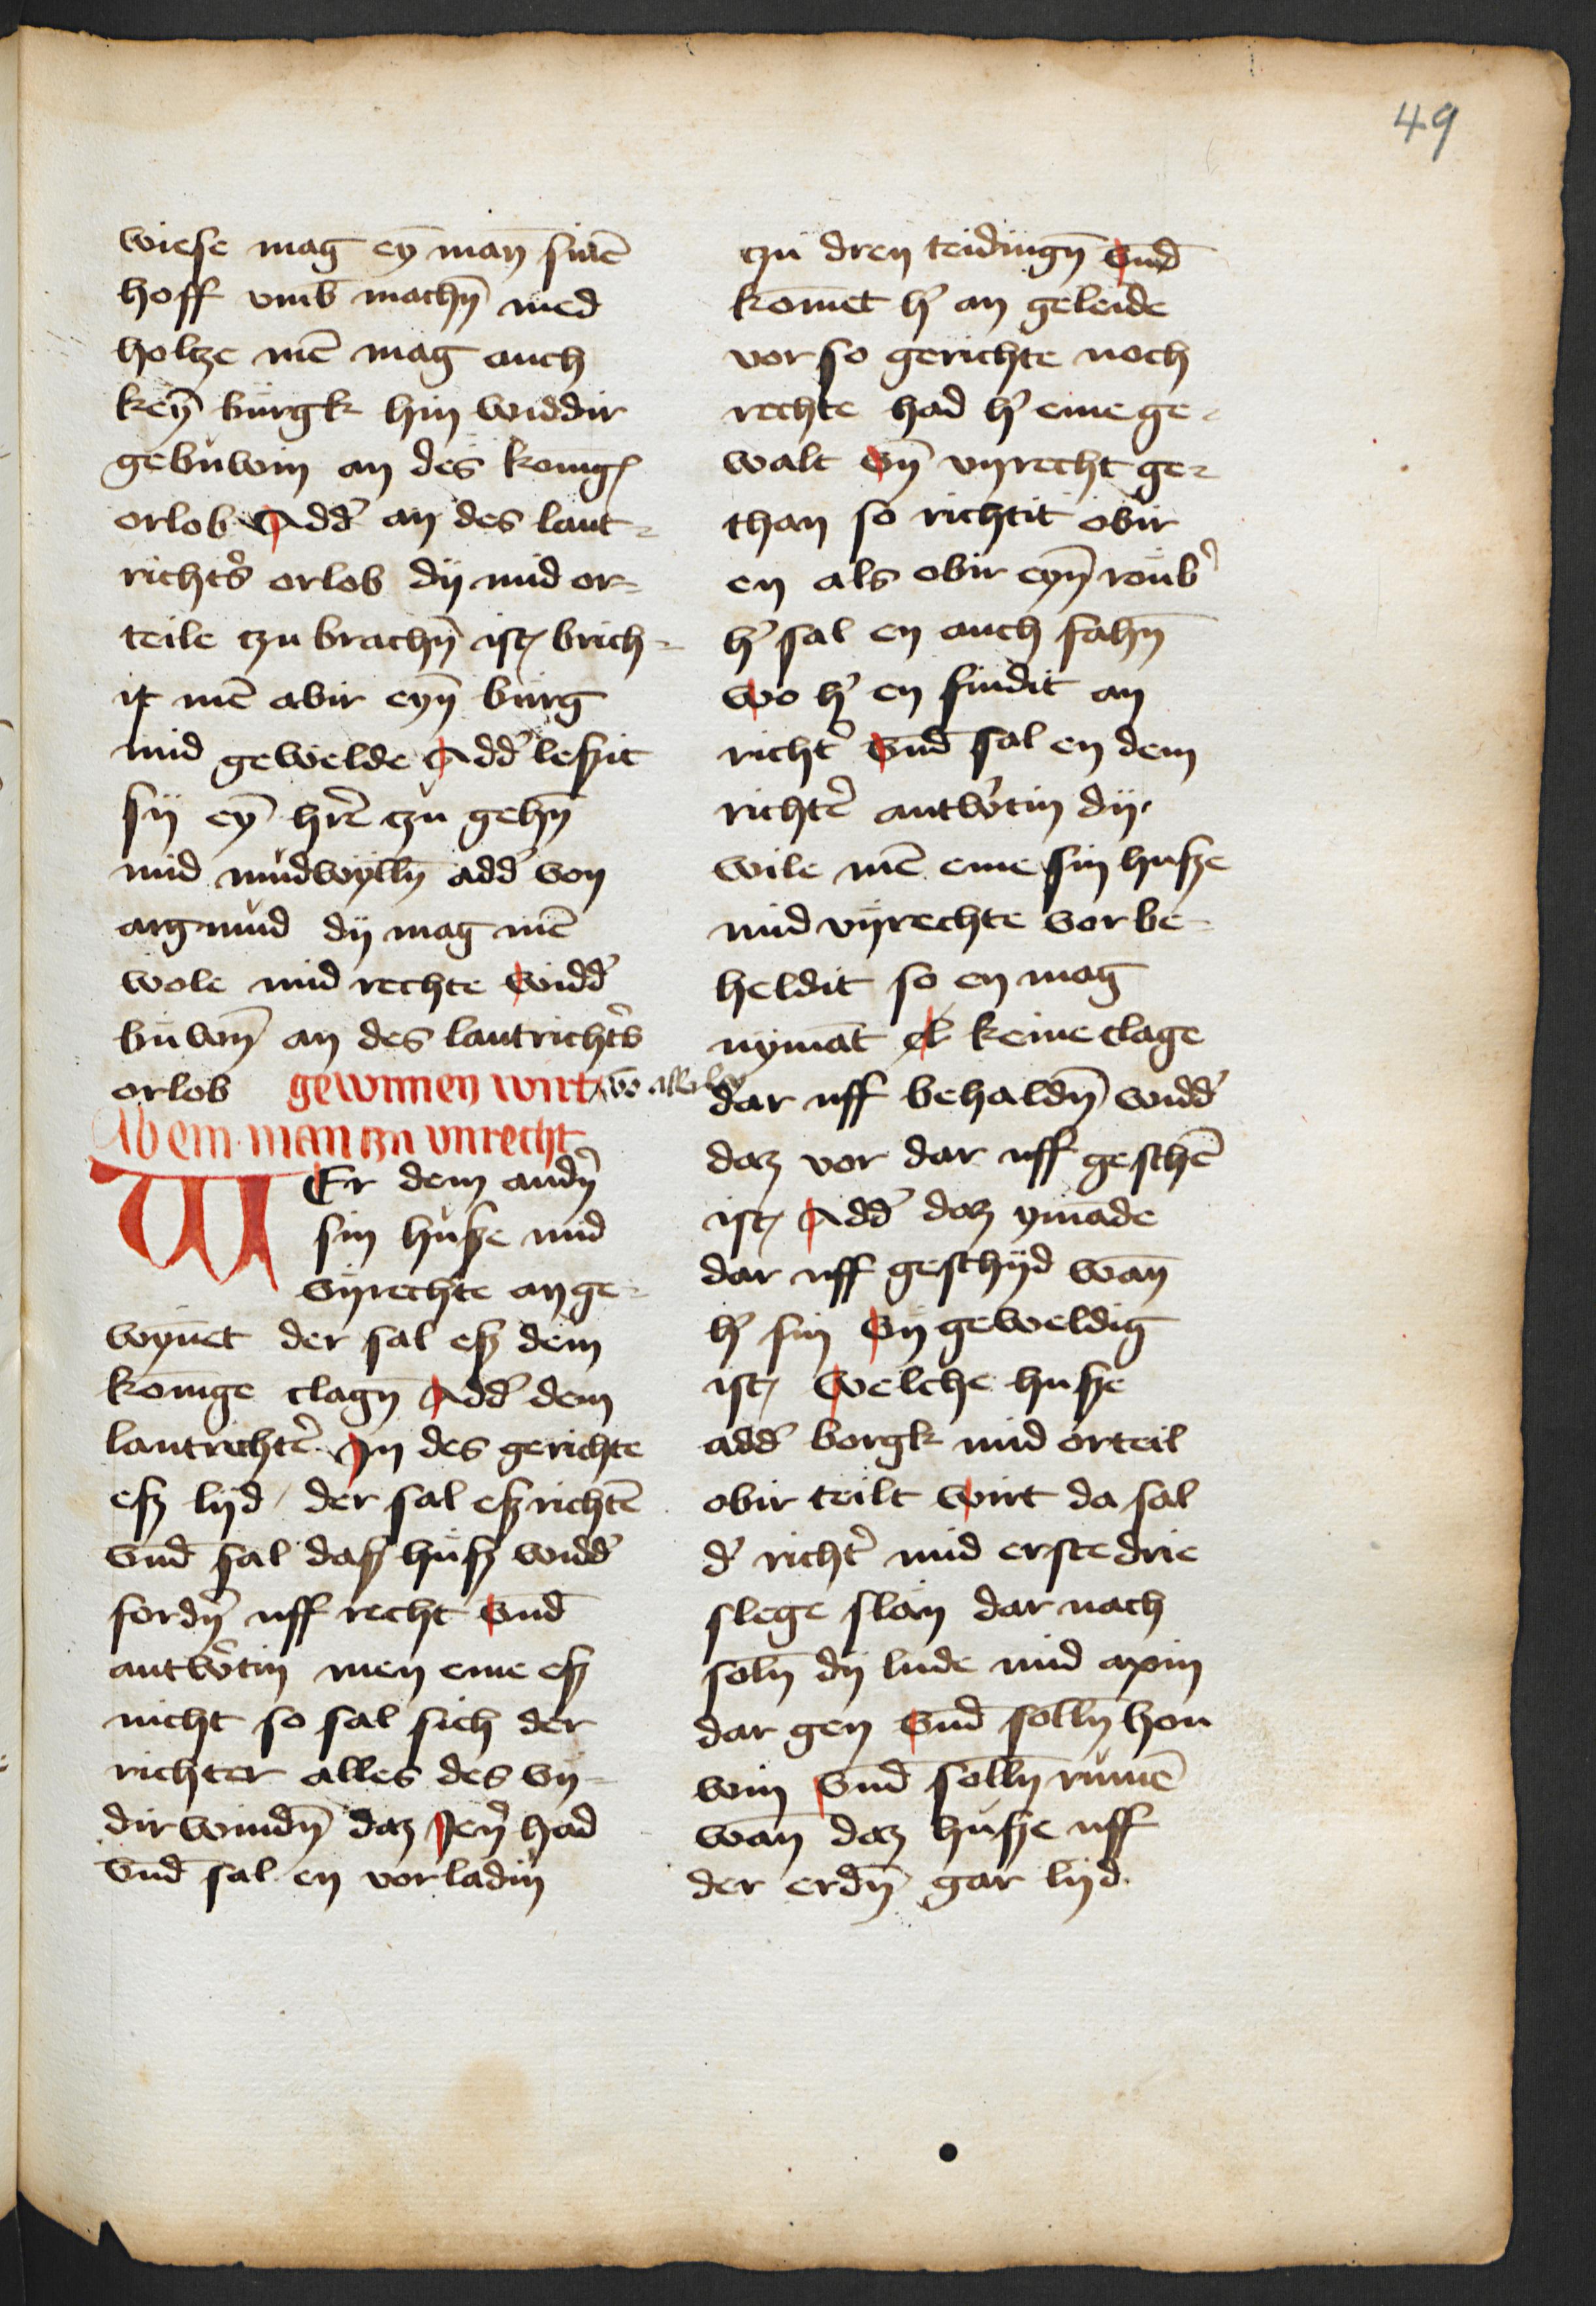 49
wiese mag eȳ maȳ sinē
hoff vmb̄ machȳ med
holtze mē mag auch
keȳ burgk hin widdir
gebuwin an des konigs
orlob Add' an des lant-
richt's orlob dij mid or-
teile tzu brachȳ ist brich-
it mē abir eyȳ burg
mid gewelde Add' leszit
sij eȳ hrē tzu gehȳ
mid mudwyllȳ add' von
argmud dij mag mē
wole mid rechte widd'
buwȳ an des lantricht's
orlob gewinnen wirt
Ab ein man zu vnrecht
WEr dem andȳ
sin husze mid
vnrechte an ge-
wyn̄et der sal esz dem
konige clagȳ Add' dem
lantricht' Jn des gerichte
esz lijd der sal esz richtē
vnd̄ sal dasz husz widd'
fordȳ uff recht vnd̄
antw'tin men eme esz
nicht so sal sich der
richter alles des vn-
dirwindȳ daz Jen' had
vnd̄ sal en vorladin
tzu dren teidingȳ vnd̄
kom̄et h' an geleide
vor so gerichte noch
rechte had h' eme ge-
walt vȳ vnrecht ge-
than so richtit obir
en als obir eyȳ roub'
h' sal en auch fahȳ
wo h' en findit an
richt' vnd̄ sal en dem
richt' antw'tin dij
wile mē eme sin husze
mid vnrechte vor be-
heldit so en mag
nymāt keine clage
dar uff behaldȳ widd'
daz vor dar uff geschē
ist Add' daz ymāde
dar uff geschijd wan̄
h' sin vn geweldig
ist welche husze
add' borgk mid orteil
obir teilt wirt da sal
d' richt' mid erste drie
slege slan dar nach
solȳ dij lude mid axin
dar gen vnd̄ sollȳ hou
win vnd̄ sollȳ rumē
wan̄ daz husze uff
der erdȳ gar lijd